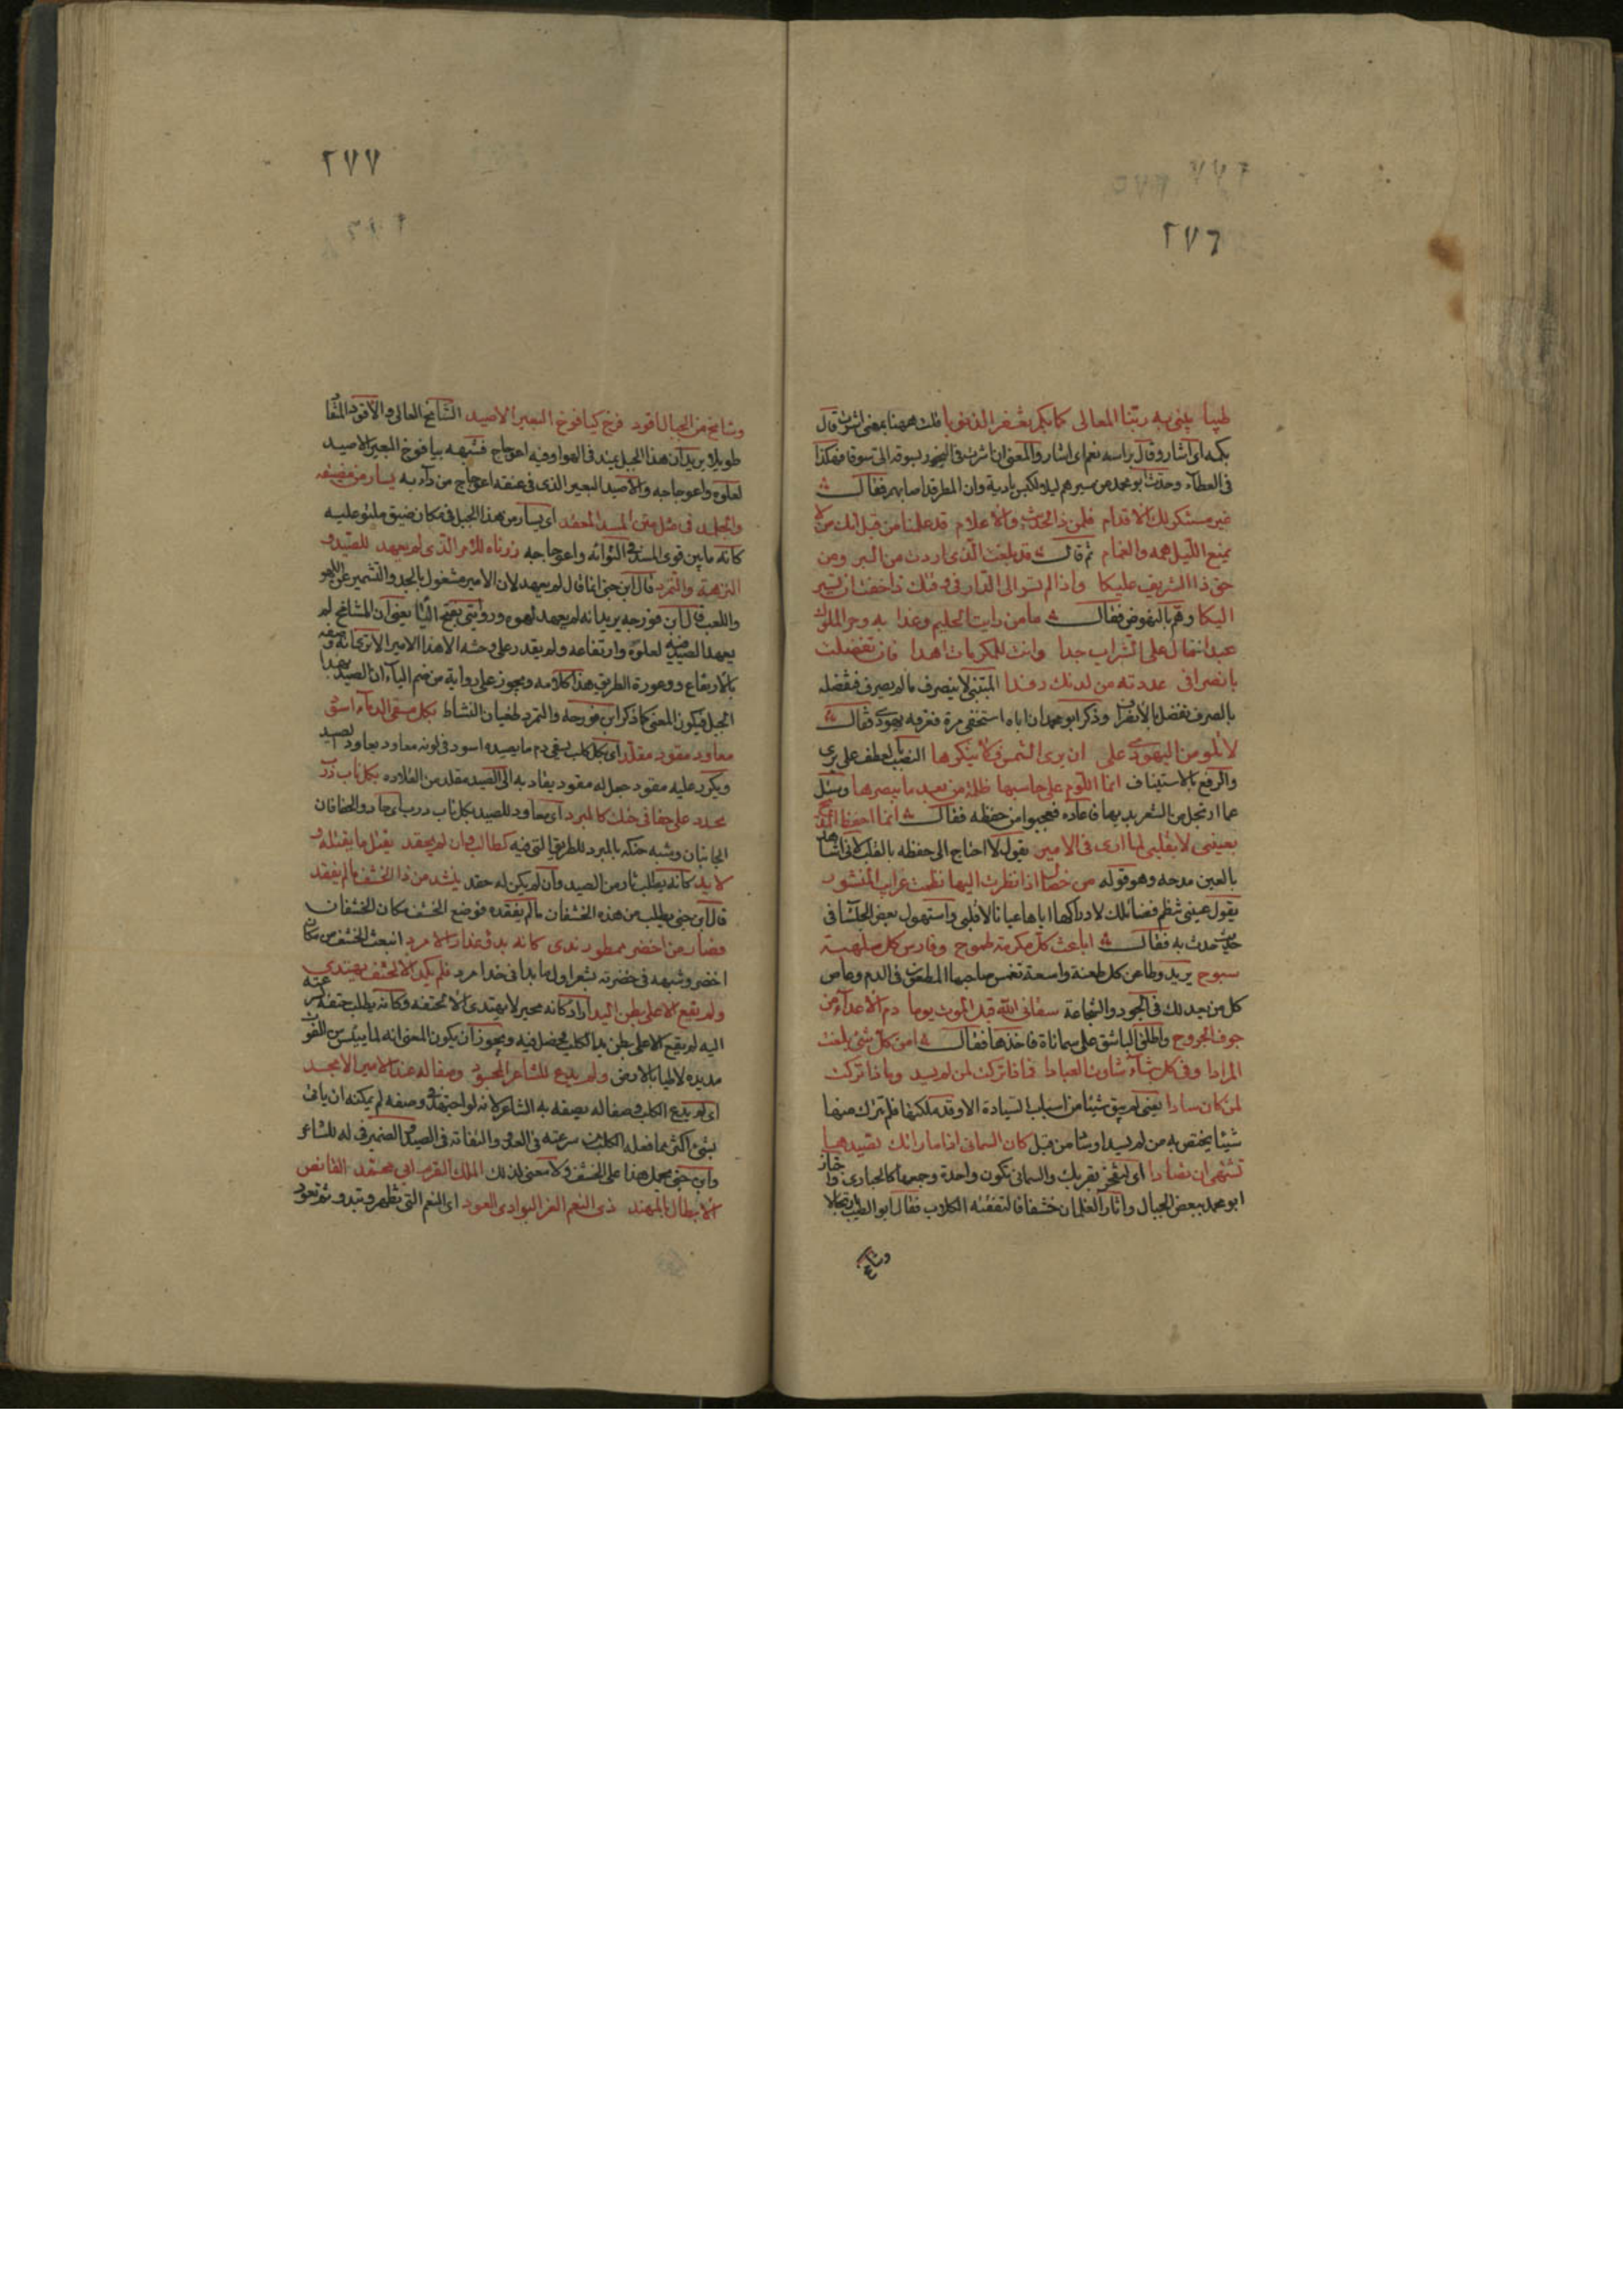 ٢٧٦
طيبا يبنى به ربنا المعالى كما بكم يغفر الذنوبا قلت ههنا بمعنى اشرت قال
بكمه اى اشار وقال براسه نعم اى اشار والمعنى ان اشرت فى البخور بسوقه الى سوقا فهكذا
فى العطآء وحدث ابو محمد عن سيرهم ليلا ولكبس بادية وان المطر قد اصابهم فقال
غير مستنكر لك الاقدام فلمن ذا الحديث والاعلام قد علمنا من قبل انك من لا
يمنع الليل همه والغمام ثم قال قد بلغت الذى اردت من البر ومن
حق ذا الشريف عليكا واذا لم تسر الى الدار فى وقتك ذا خفت ان تسير
اليكا وهم بالنهوض فقال يا من رايت الحليم وغدا به وحر الملوك
عبدا مال على الشراب جدا وانت للمكرمات اهدا فان تفضلت
بانصرافى عددته من لدنك رفدا المتنبى لا ينصرف ما لم يصرف فتفضله
بالصرف تفضل بالانصراف وذكر ابو محمد ان اباه استخفى مرة فعرفه يهودى فقال
لا تلومن اليهودى على ان يرى الشمس فلا ينكرها النصب بالعطف على يرى
والرفع بالاستيناف انما اللوم على حاسبها ظلمة من بعد ما يبصرها وسئل
عما ارتجل من الشعر بديها فاعاده فعجبوا من حفظه فقال انما احفظ المديح
بعينى لا بقلبى لما ارى فى الامير يقول لا احتاج الى حفظه بالقلب لانى اشاهد
بالعين مدحه وهو قوله من خصال اذا نظرت اليها نظمت غرايب المنشور
يقول عينى تنظم فضائلك لادراكها اياها عيانا لا قلبى واستهول بعض الجلسا فى
حديث حدث به فقال اباعث كل مكرمة طموح وفارس كل سلهبة
سبوح يريد وطاعن كل طعنة واسعة تغمس صاحبها المطعون فى الدم وعاص
كل من يعدلك فى الجود والشجاعة سقانى الله قبل الموت يوما دم الاعداء من
جوف الجروح واطلق الباشق على سماناة فاخذها فقال امن كل شئ بلغت
المرادا وفى كل شاو شاوت العبادا فماذا تركت لمن لم يسد وماذا تركت
لمن كان سادا يعنى لم يبق شيئا من اسباب السيادة الا وقد ملكتها فلم تترك منها
شيئا يختص به من لم يسد او شا من قبل كان السمانى اذا ما راتك تصيدها
تشتهى ان تصادا اى لتفخر بقربك والسمانى تكون واحدة وجمعا كالحبارى واجتاز
ابو محمد ببعض الجبال واثار الغلمان خشفا فالتقفته الكلاب فقال ابو الطيب ارتجالا
وشامخ
٢٧٧
وشامخ من الجبال اقود فرد كيافوخ البعير الاصيد الشامخ العالى والاقود المنقاد
طويلا يريد ان هذا الجبل يمتد فى الهوا وفيه اعوجاج فشبهه بيافوخ البعير الاصيد
لعلوه واعوجاجه والاصيد البعير الذى فى عنقه اعوجاج من دآء به يسار من مضيقه
والجلمد فى مثل متن المسد المعقد اى يسار من هذا الجبل فى مكان ضيق ملتو عليه
كانه ما بين قوى المسد فى التوائه واعوجاجه زرناه للامر الذى لم يعهد للصيد و
النزهة والتمرد قال ابن جنى انما قال لم يعهد لان الامير مشغول بالجد والتشمير عن اللهو
واللعب قال ابن فورجه يريد انه لم يعهد لهوه وروايتى بفتح اليا يعنى ان المشامخ لم
يعهد الصيد فيه لعلوه وارتفاعه ولم يقدر على وحشه الا هذا الامير الا ترى انه وصفه
بالارتفاع ووعورة الطريق هذا كلامه ويجوز على رواية من ضم اليآء ان الصيد لم يعهد
الجبل فيكون المعنى كما ذكر ابن فورجه والتمرد طغيان النشاط بكل مسقى الدمآء اسود
معاود مقود مقلد اى بكل كلب يسقى دم ما يصيده اسود فى لونه معاود يعاود الصيد
ويكرر عليه مقود جعل له مقود يقاد به الى الصيد مقلد من القلاده بكل ناب ذرب
محدد على حفافى حنك كالمبرد اى معاود للصيد بكل ناب ذرب اى حاد والحفافان
الجانبان وشبه حنكه بالمبرد للطريق التى فيه كطالب الثار وان لم يحقد يقتل ما يقتله و
لا يدى كانه يطلب ثارا من الصيد وان لم يكن له حقد ينشد من ذا الخشف ما لم يفقد
قال ابن جنى يطلب من هذه الخشفان ما لم يفقده فوضع الخشف مكان الخشفان
فثار من اخضر ممطور ندى كانه بدو عذار الامرد انبعث الخشف من مكان
اخضر وشبهه فى خضرته بشعر اول ما بدا فى خد امرد فلم يكد الا لحتف يهتدى
ولم يقع الا على بطن اليد اراد كانه محير لا يهتدى الا لحتفه وكانه يطلب حتفه
اليه لم يقع الا على بطن يد الكلب فحصل فيه ويجوز ان يكون المعنى انه لما يئس من الفوت
مد يده لاطيا بالارض ولم يدع للشاعر المجود وصفا له عند الامير الامجد
اى لم يدع الكلب وصفا له يصفه به الشاعر لانه لو اجتهد فى وصفه لم يمكنه ان ياتى
بشئ اكثر مما فعله الكلب من سرعته فى العدو والتفاته فى الصيد والضمير فى له للشاعر
وابن جنى يحمل هذا على الخشف ولا معنى لذلك الملك القرم ابى محمد القانص
الابطال بالمهند ذى النعم الغر البوادى العود اى النعم التى تظهر وتبدو ثم تعود